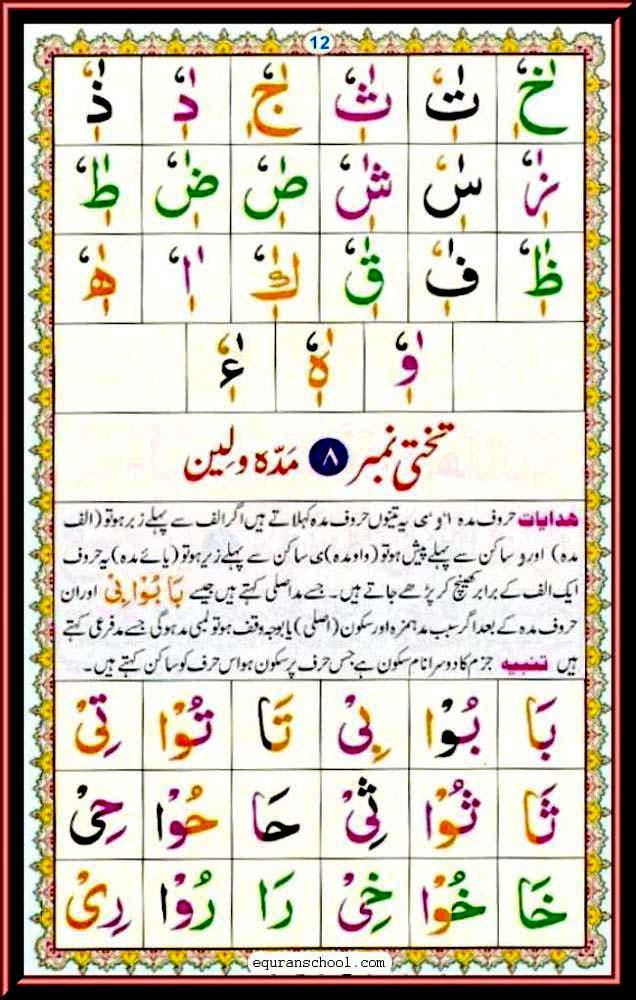 12
خٰٖٗ تٰٖٗ ثٰٖٗ جٰٖٗ دٰٖٗ ذٰٖٗ
زٰٖٗ سٰٖٗ شٰٖٗ صٰٖٗ ضٰٖٗ طٰٖٗ
ظٰٖٗ فٰٖٗ قٰٖٗ كٰٖٗ اٰٖٗ ھٰٖٗ
وٰٖٗ ہٰٖٗ ءٰٖٗ
تختی نمبر ۸ مَدّہ و لِین
ھدایات حروف مدہ ا و ی یہ تینوں حروف مدہ کہلاتے ہیں اگر الف سے پہلے زبر ہو تو (الف
مدہ) اور و ساکن سے پہلے پیش ہو تو (واو مدہ) ی ساکن سے پہلے زیر ہو تو (یائے مدہ) یہ حروف
ایک الف کے برابر کھینچ کر پڑھے جاتے ہیں۔ جسے مد اصلی کہتے ہیں جیسے بَا بُوْا بِیْ اور ان
حروف مدہ کے بعد اگر سبب مد ہمزہ اور سکون (اصلی) یا بوجہ وقف ہو تو لمبی مد ہوگی جسے مد فرعی کہتے
ہیں تنبیہ جزم کا دوسرا نام سکون ہے جس حرف پر سکون ہو اس حرف کو ساکن کہتے ہیں۔
بَا بُوْا بِیْ تَا تُوْا تِیْ
ثَا ثُوْا ثِیْ حَا حُوْا حِیْ
خَا خُوْا خِیْ رَا رُوْا رِیْ
equranschool.com